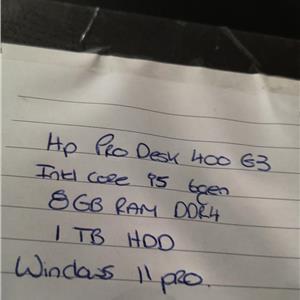 Hp ProDesk 400 G3
Intel Core i5 6gen
8GB RAM DDR4
1 TB HDD
Windows 11 pro.